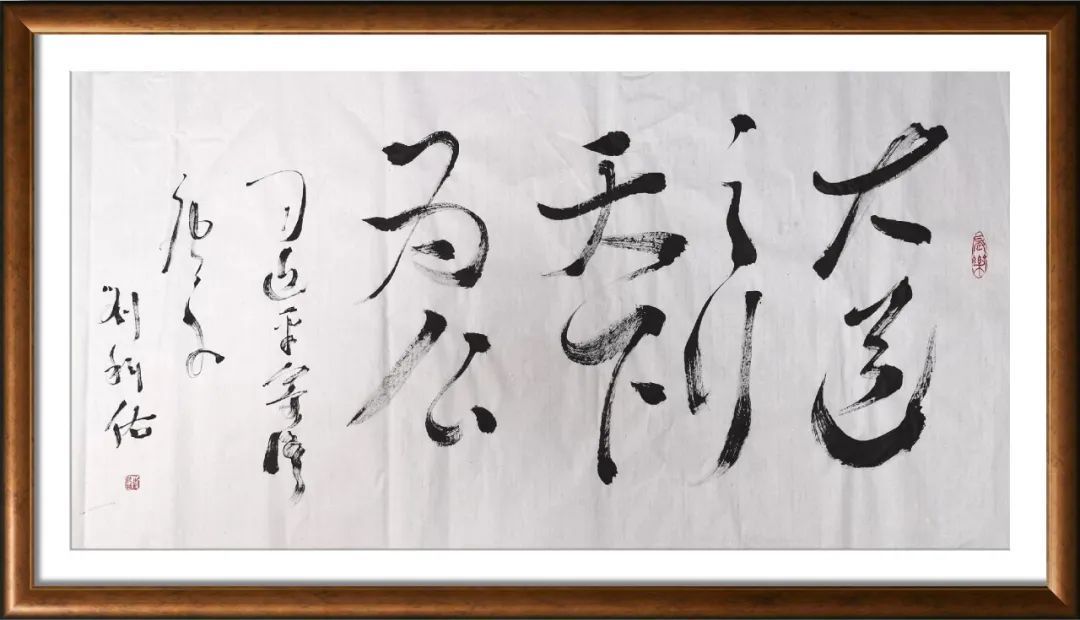 大道
之行
天下
为公
习近平寄语
刘佑